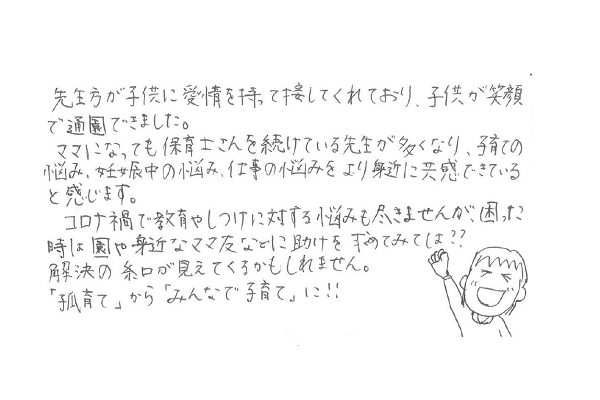 先生方が子供に愛情を持って接してくれており、子供が笑顔
で通園できました。
ママになっても保育士さんを続けている先生が多くなり、子育ての
悩み、妊娠中の悩み、仕事の悩みをより身近に共感できている
と感じます。
コロナ禍で教育やしつけに対する悩みも尽きませんが、困った
時は園や身近なママ友などに助けを求めてみては??
解決の糸口が見えてくるかもしれません。
「孤育て」から「みんなで子育て」に!!